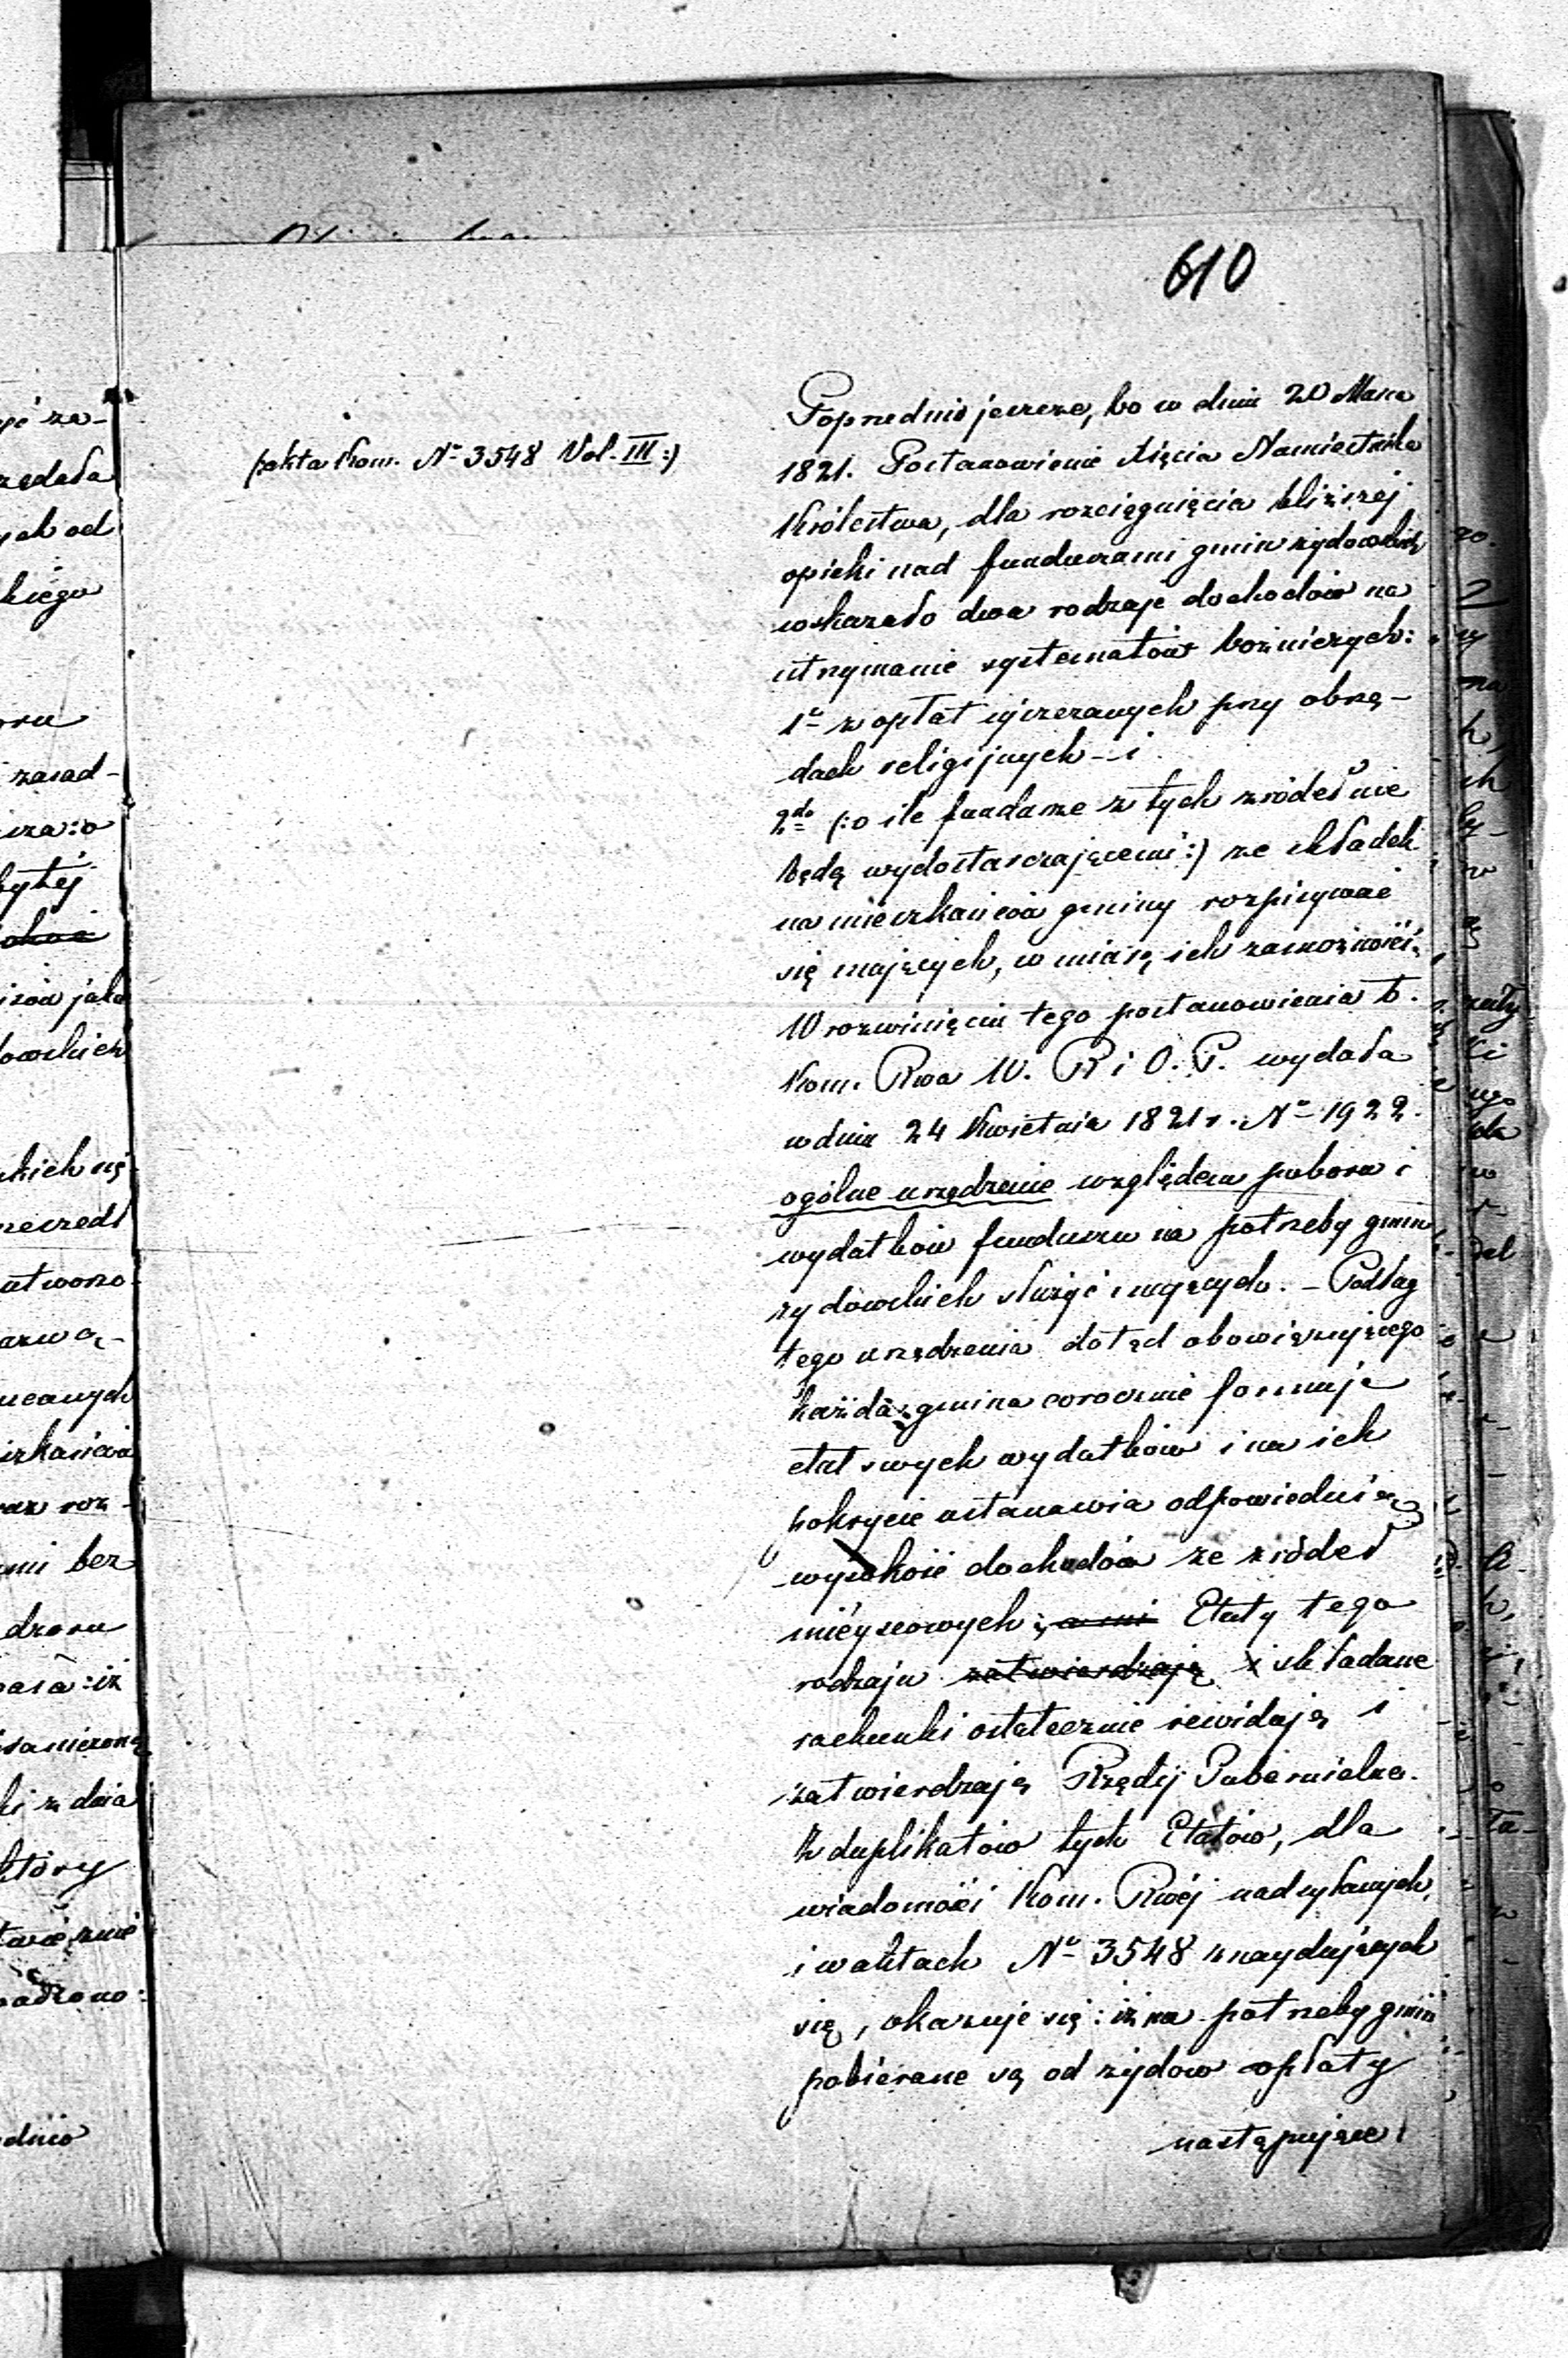 610
(:akta Kom. No 3548 Vol. III:)
Poprzednio jeszcze, bo w dniu 20 Marca
1821. Postanowienie Xięcia Namiestnika
Królestwa, dla rozciągnięcia bliższej
opieki nad funduszami gmin żydowskich
wskazało dwa rodzaje dochodów na
utrzymanie systematów bożniczych:
1o z opłat uiszczanych przy obrzę-
dach religijnych – i
2do (:o ile fundusze z tych źródeł nie
będą wydostarczającemi:) ze składek
na mieszkańców gminy rozpisywać
się mających, w miarę ich zamożności.
W rozwinięciu tego postanowienia b.
Kom. Rwa W. R i O. P. wydała
w dniu 24 Kwietnia 1821 r. No 1922.
ogólne urządzenie względem poboru i
wydatków funduszu na potrzeby gmin
żydowskich służyć mających. – Podług
tego urządzenia dotąd obowiązującego
każda gmina corocznie formuje
etat swych wydatków i na ich
pokrycie ustanawia odpowiednią
wysokość dochodów ze źródeł
miéyscowych; Etaty tego
rodzaju zatwierdzają i składane
rachunki ostatecznie rewidują i
zatwierdzają Rządy Gubernialne.
Z duplikatów tych Etatów, dla
wiadomości Kom. Rwéj nadsyłanych,
i w aktach No 3548 znaydujących
się, okazuje się: iż na potrzeby gmin
pobierane są od żydów opłaty
następujące: